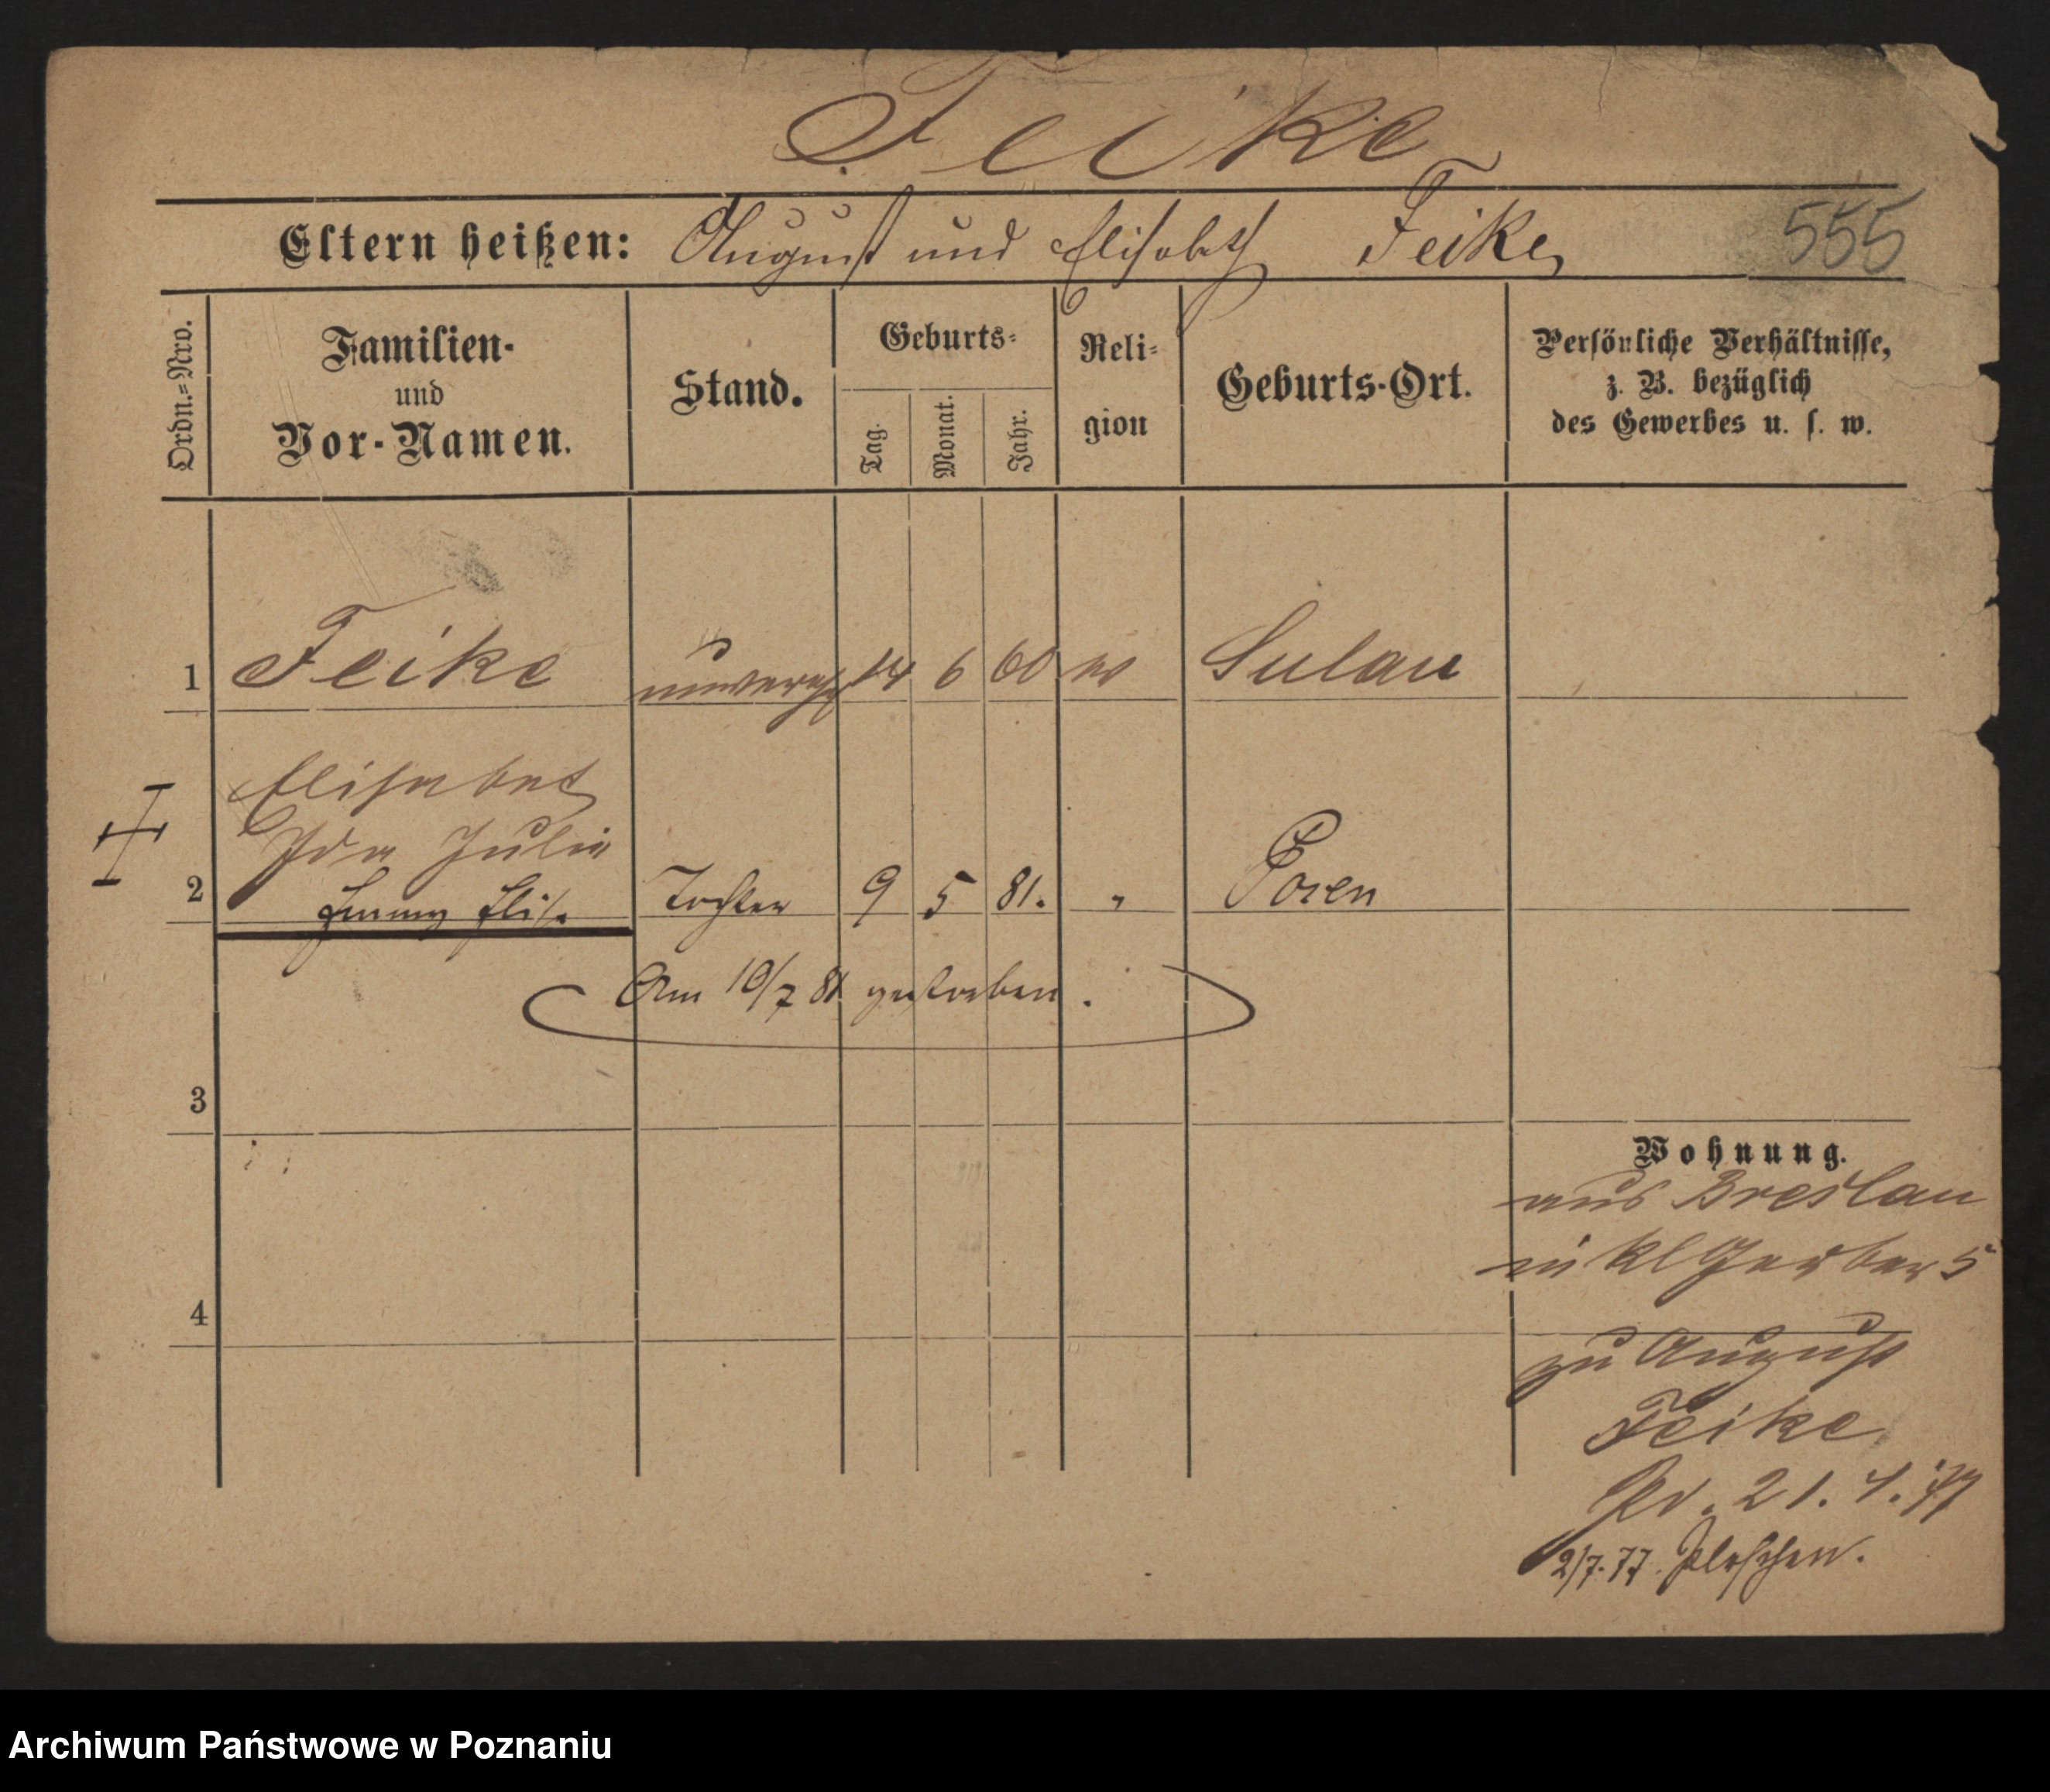 Feike
Eltern heißen: August und Elisabeth Feike 555
Ordn.=Nro.
Familien-
und
Vor-Namen.
Stand.
Geburts=
Tag. Monat. Jahr.
Reli=
gion
Geburts-Ort.
Persönliche Verhältnisse,
z. B. bezüglich
des Gewerbes u. s. w.
1 Feike unvereh 14 6 60 ev Sulau
Elisabet
Ida Julie
2 Emmy Elise Tochter 9 5 81. " Posen
Am 10/7 81 gestorben.
3
Wohnung.
aus Breslau
in kl Gerber 5
4
zu August
Feike
Pr. 21. 4. 77
2/7. 77. Pleschen.
Archiwum Państwowe w Poznaniu